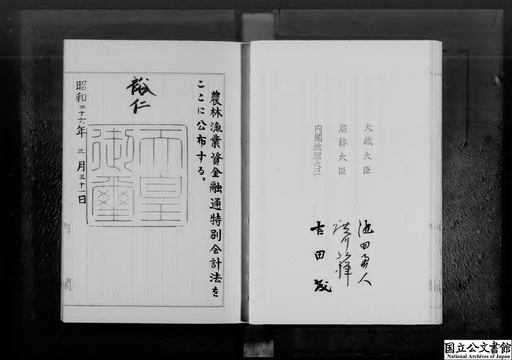 農林漁業資金融通特別会計法を
ここに公布する。
裕仁
天皇
御璽
昭和二十六年三月三十一日
大蔵大臣 池田勇人
農林大臣
内閣総理大臣 吉田茂
国立公文書館
National Archives of Japan